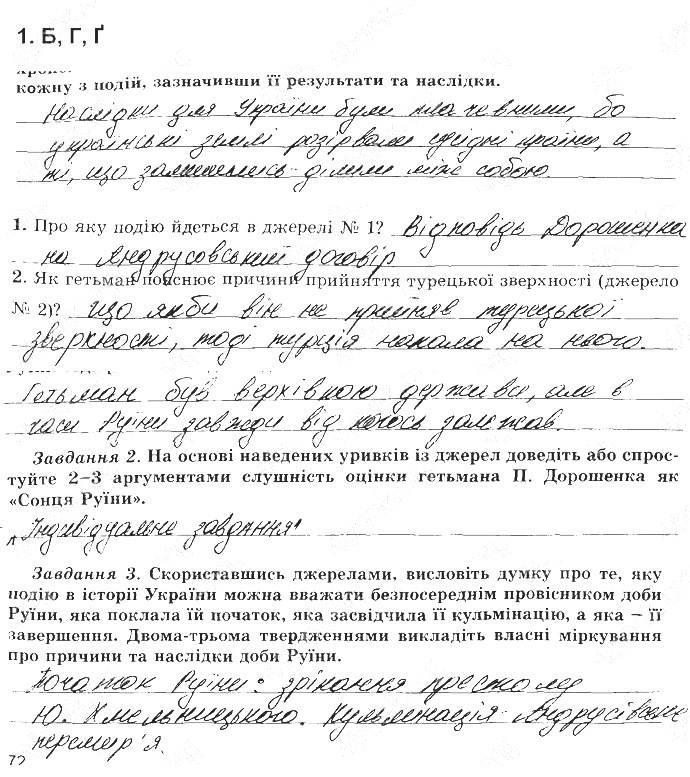 1. Б, Г, Ґ
кожну з подій, зазначивши її результати та наслідки.
Наслідки для України були плачевними, бо
українські землі розірвали сусідні країни, а
ті, що залишились ділили між собою.
1. Про яку подію йдеться в джерелі № 1? Відповідь Дорошенка
на Андрусовський договір
2. Як гетьман пояснює причини прийняття турецької зверхності (джерело
№ 2)? Що якби він не прийняв турецької
зверхності, тоді турція напала на нього.
Гетьман був верхівкою держави, але в
часи Руїни завжди від когось залежав.
Завдання 2. На основі наведених уривків із джерел доведіть або спрос-
туйте 2–3 аргументами слушність оцінки гетьмана П. Дорошенка як
«Сонця Руїни».
„Індивідуальне завдання"
Завдання 3. Скориставшись джерелами, висловіть думку про те, яку
подію в історії України можна вважати безпосереднім провісником доби
Руїни, яка поклала їй початок, яка засвідчила її кульмінацію, а яка – її
завершення. Двома-трьома твердженнями викладіть власні міркування
про причини та наслідки доби Руїни.
Початок Руїни: зрікання престолу
Ю. Хмельницького. Кульменація – Андрусівське
перемир'я.
72